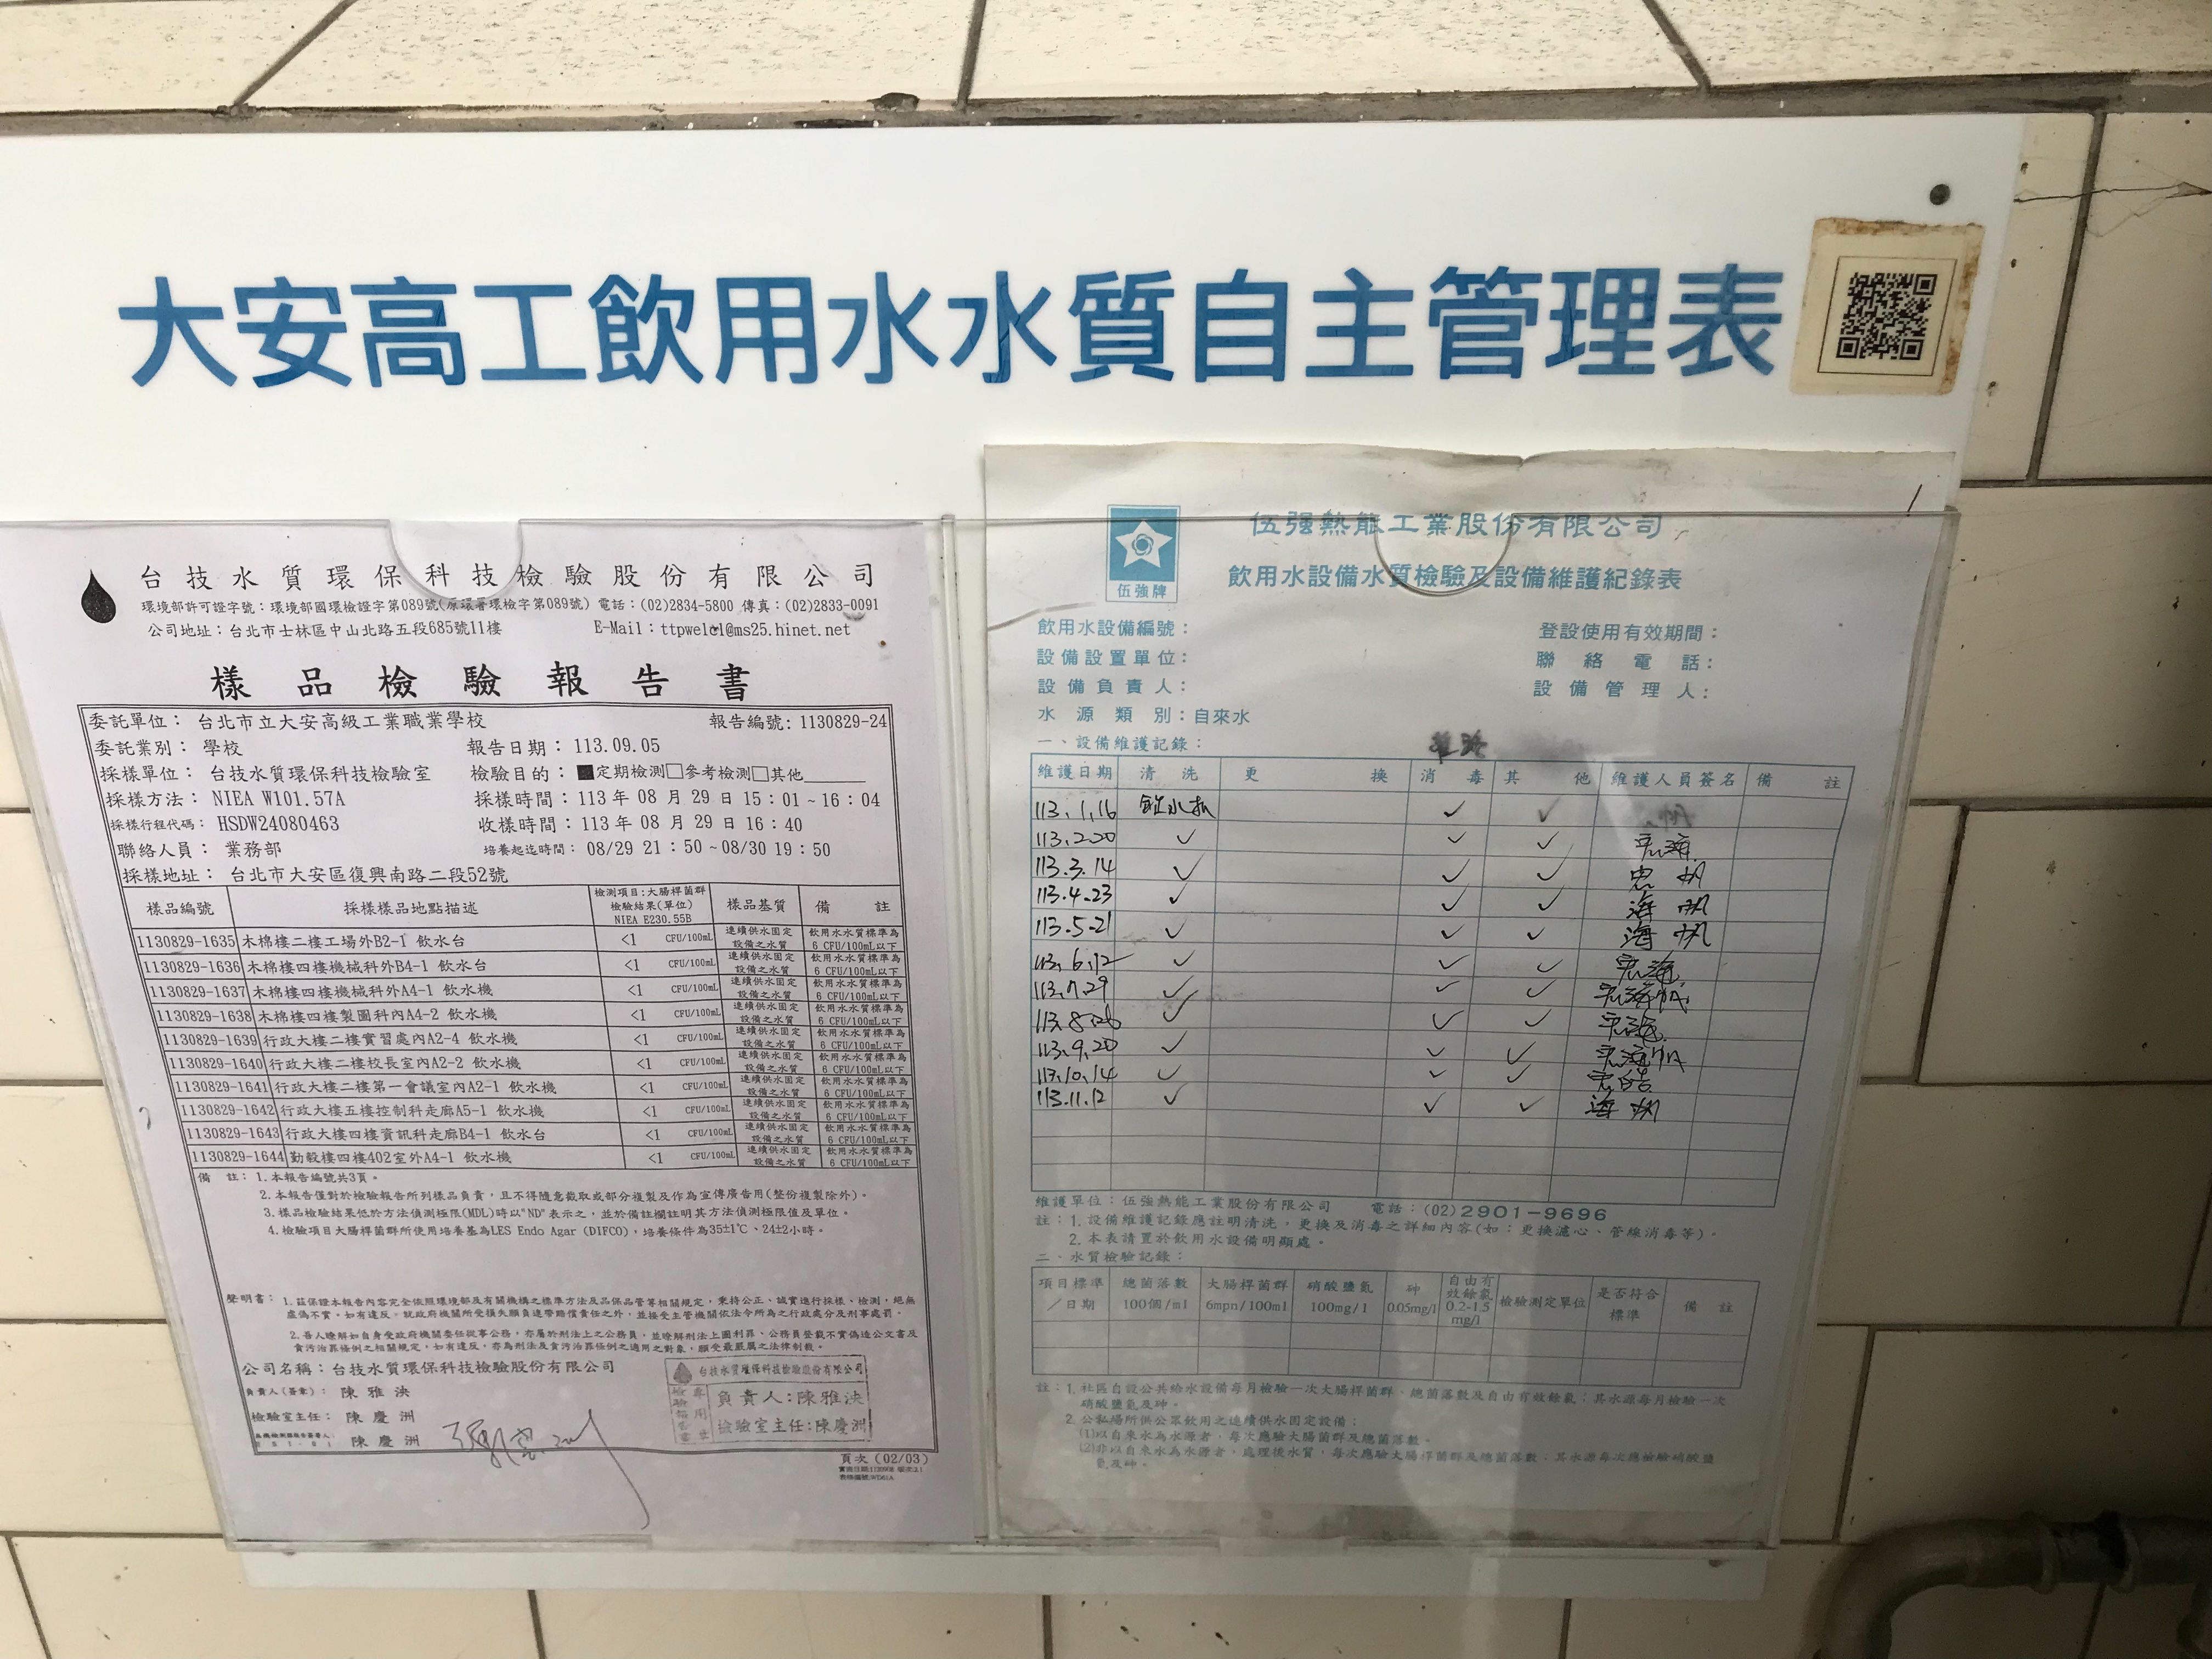 大安高工飲用水水質自主管理表
台技水質環保科技檢驗股份有限公司
環境部許可證字號：環境部國環檢證字第089號(原環署環檢字第089號) 電話：(02)2834-5800 傳真：(02)2833-0091
公司地址：台北市士林區中山北路五段685號11樓 E-Mail：@ms25.hinet.net
樣品檢驗報告書
委託單位： 台北市立大安高級工業職業學校 報告編號: 1130829-24
委託業別： 學校 報告日期：113.09.05
採樣單位： 台技水質環保科技檢驗室 檢驗目的：■定期檢測□參考檢測□其他
採樣方法： NIEA W101.57A 採樣時間：113 年 08 月 29 日 15：01 ~ 16：04
採樣行程代碼： HSDW24080463 收樣時間：113 年 08 月 29 日 16：40
聯絡人員： 業務部 培養起迄時間： 08/29 21：50 ~08/30 19：50
採樣地址： 台北市大安區復興南路二段52號
樣品編號 採樣樣品地點描述 檢測項目:大腸桿菌群 檢驗結果(單位) NIEA E230.55B 樣品基質 備 註
1130829-1635 木棉樓二樓工場外B2-1 飲水台 <1 CFU/100mL 連續供水固定設備之水質 飲用水水質標準為 6 CFU/100mL以下
1130829-1636 木棉樓四樓機械科外B4-1 飲水台 <1 CFU/100mL 連續供水固定設備之水質 飲用水水質標準為 6 CFU/100mL以下
1130829-1637 木棉樓四樓機械科外A4-1 飲水機 <1 CFU/100mL 連續供水固定設備之水質 飲用水水質標準為 6 CFU/100mL以下
1130829-1638 木棉樓四樓製圖科內A4-2 飲水機 <1 CFU/100mL 連續供水固定設備之水質 飲用水水質標準為 6 CFU/100mL以下
1130829-1639 行政大樓二樓實習處內A2-4 飲水機 <1 CFU/100mL 連續供水固定設備之水質 飲用水水質標準為 6 CFU/100mL以下
1130829-1640 行政大樓二樓校長室內A2-2 飲水機 <1 CFU/100mL 連續供水固定設備之水質 飲用水水質標準為 6 CFU/100mL以下
1130829-1641 行政大樓二樓第一會議室內A2-1 飲水機 <1 CFU/100mL 連續供水固定設備之水質 飲用水水質標準為 6 CFU/100mL以下
1130829-1642 行政大樓五樓控制科走廊A5-1 飲水機 <1 CFU/100mL 連續供水固定設備之水質 飲用水水質標準為 6 CFU/100mL以下
1130829-1643 行政大樓四樓資訊科走廊B4-1 飲水台 <1 CFU/100mL 連續供水固定設備之水質 飲用水水質標準為 6 CFU/100mL以下
1130829-1644 勤毅樓四樓402室外A4-1 飲水機 <1 CFU/100mL 連續供水固定設備之水質 飲用水水質標準為 6 CFU/100mL以下
備 註：1.本報告編號共3頁。
2.本報告僅對於檢驗報告所列樣品負責，且不得隨意截取或部分複製及作為宣傳廣告用(整份複製除外)。
3.樣品檢驗結果低於方法偵測極限(MDL)時以"ND"表示之，並於備註欄註明其方法偵測極限值及單位。
4.檢驗項目大腸桿菌群所使用培養基為LES Endo Agar (DIFCO)，培養條件為35±1℃、24±2小時。
聲明書：1.茲保證本報告內容完全依照環境部及有關機構之標準方法及品保品管等相關規定，秉持公正、誠實進行採樣、檢測，絕無
虛偽不實，如有違反，就政府機關所受損失願負連帶賠償責任之外，並接受主管機關依法令所為之行政處分及刑事處罰。
2.吾人瞭解如自身受政府機關委任從事公務，亦屬於刑法上之公務員，並瞭解刑法上圖利罪、公務員登載不實偽造公文書及
貪污治罪條例之相關規定，如有違反，亦為刑法及貪污治罪條例之適用之對象，願受最嚴厲之法律制裁。
公司名稱：台技水質環保科技檢驗股份有限公司
負責人(簽章)： 陳雅泱
檢驗室主任： 陳慶洲
陳慶洲
台技水質環保科技檢驗股份有限公司
檢驗報告專用章
負責人:陳雅泱
檢驗室主任:陳慶洲
頁次 (02/03)
伍強牌
伍强熱能工業股份有限公司
飲用水設備水質檢驗及設備維護紀錄表
飲用水設備編號： 登設使用有效期間：
設備設置單位： 聯絡電話：
設備負責人： 設備管理人：
水源類別：自來水
一、設備維護記錄：
維護日期 清洗 更換 消毒 其他 維護人員簽名 備註
113.1.16 ✓ ✓
113.2.20 ✓ ✓ ✓
113.3.14 ✓ ✓ ✓
113.4.23 ✓ ✓ ✓ 海帆
113.5.21 ✓ ✓ ✓ 海帆
113.6.12 ✓ ✓ ✓
113.7.29 ✓ ✓ ✓
113.8.26 ✓ ✓ ✓
113.9.20 ✓ ✓ ✓
113.10.14 ✓ ✓ ✓
113.11.12 ✓ ✓ ✓ 海帆
維護單位：伍強熱能工業股份有限公司 電話：(02)2901-9696
註：1. 設備維護記錄應註明清洗，更換及消毒之詳細內容(如：更換濾心、管線消毒等)。
2. 本表請置於飲用水設備明顯處。
二、水質檢驗記錄：
項目標準／日期 總菌落數 100個/ml 大腸桿菌群 6mpn/100ml 硝酸鹽氮 100mg/l 砷 0.05mg/l 自由有效餘氯 0.2-1.5 mg/l 檢驗測定單位 是否符合標準 備註
註：1. 社區自設公共給水設備每月檢驗一次大腸桿菌群、總菌落數及自由有效餘氯；其水源每月檢驗一次
硝酸鹽氮及砷。
2. 公私場所供公眾飲用之連續供水固定設備：
(1)以自來水為水源者，每次應驗大腸菌群及總菌落數。
(2)非以自來水為水源者，處理後水質，每次應驗大腸桿菌群及總菌落數；其水源每次應檢驗硝酸鹽
氮及砷。